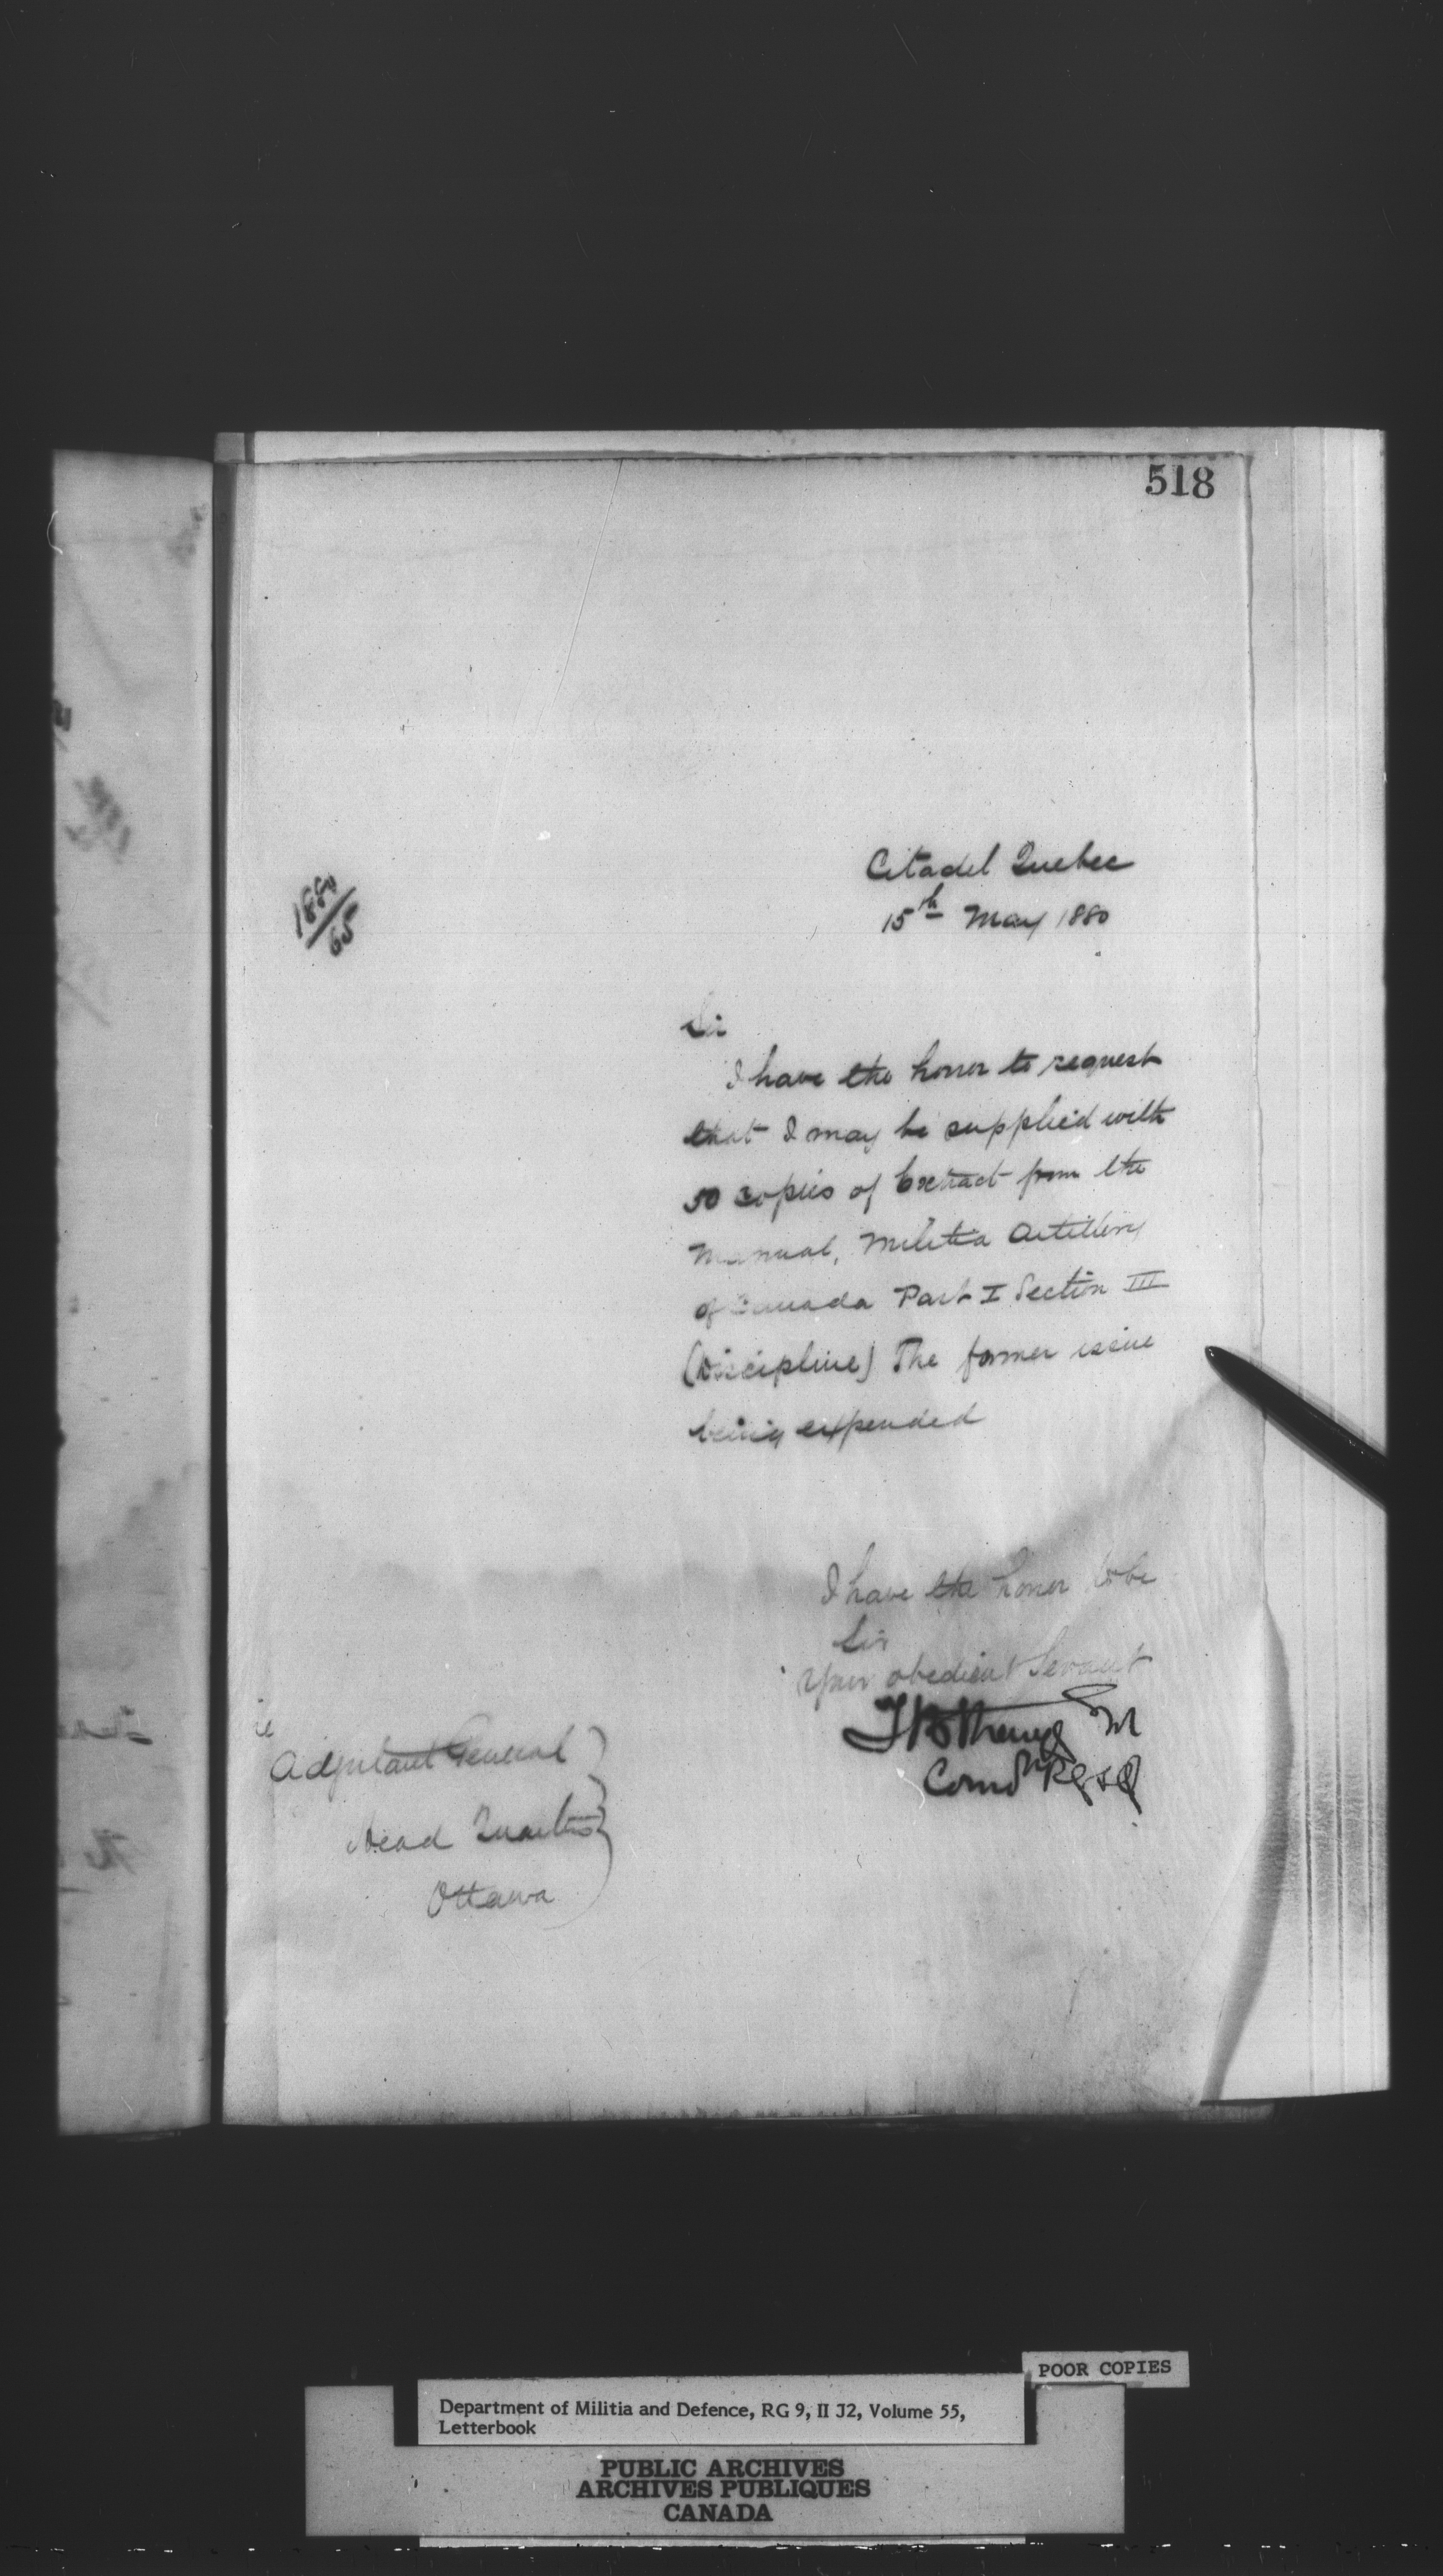 518
Citadel Quebec
15th May 1880
1880
65
Sir
I have the honor to request
that I may be supplied with
50 copies of Extract from the
Manual, Militia Artillery
of Canada Part I Section III
(Discipline) The former issue
being expended
I have the honor to be
Sir
Your obedient Servant
Adjutant General
Head Quarters
Ottawa
POOR COPIES
Department of Militia and Defence, RG 9, II J2, Volume 55,
Letterbook
PUBLIC ARCHIVES
ARCHIVES PUBLIQUES
CANADA